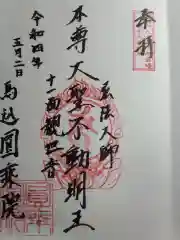 奉拝
弘法大師
本尊大聖不動明王
十一面観世音
令和四年
五月二日
馬込圓乗院